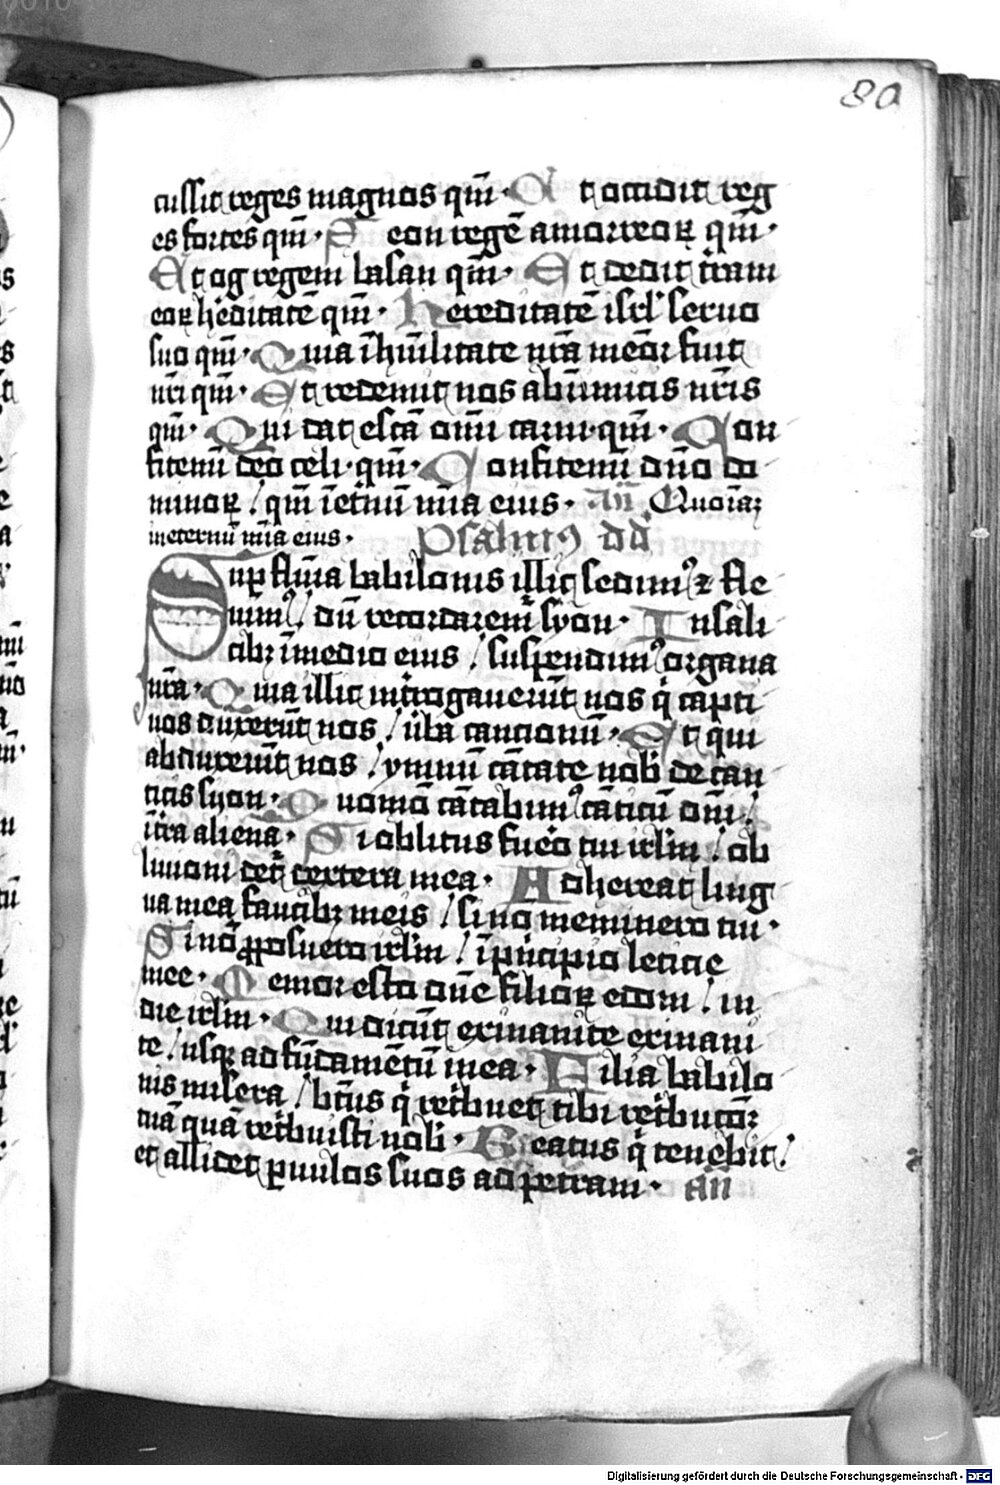 80
cussit reges magnos qm̄· Et occidit reg
es fortes qm̄· Seon regē amorreoꝝ qm̄·
Et og regem basan qm̄· Et dedit t̄ram
eoꝝ h̄editatē qm̄· Hereditatē isrl̓ seruo
suo qm̄· Quia ī hūilitate nr̄a memor fuit
nr̄i qm̄· Et redemit nos ab inimicis nr̄is
qm̄· Qui dat escā omī carni·qm̄· Con
fitemī deo celi·qm̄· Confitemī dn̄o do
minoꝝ / qm̄ ī et̄nū mīa eius· An̄ Quoniaꝫ
ineternū mīa eius· Psalmꝰ dd̄
Sup flūia babilonis illic sedimꝰ ⁊ fle
uimꝰ / dū recordaremꝰ syon· In sali
cibꝫ ī medio eius / suspendimꝰ organa
nr̄a· Quia illic int̄rogauerūt nos q̇ capti
uos duxerūt nos / ūba cancionū· Et qui
abduxerūt nos / ymnū cātate nob̄ de can
ticis syon· Quomō cātabimꝰ cāticū dn̄i /
ī t̄ra aliena· Si oblitus fuēo tui irlm̄ / ob
liuioni det̄ dextera mea· Adhereat ling
ua mea faucibꝫ meis / si nō meminero tui·
Si nō ꝓposuero irlm̄ / ī pͥncipio leticie
mee· Memor esto dn̄e filioꝝ edom / in
die irlm̄· Qui dicūt exinanite exinani
te / usqꝫ ad fūdamētū in ea· Filia babilo
nis misera / bt̄us q̇ ret̄buet tibi ret̄bucōꝫ
tuā quā ret̄buisti nob̄· Beatus q̇ tenebit /
et allidet ꝑuulos suos ad petram· An̄
Digitalisierung gefördert durch die Deutsche Forschungsgemeinschaft - DFG